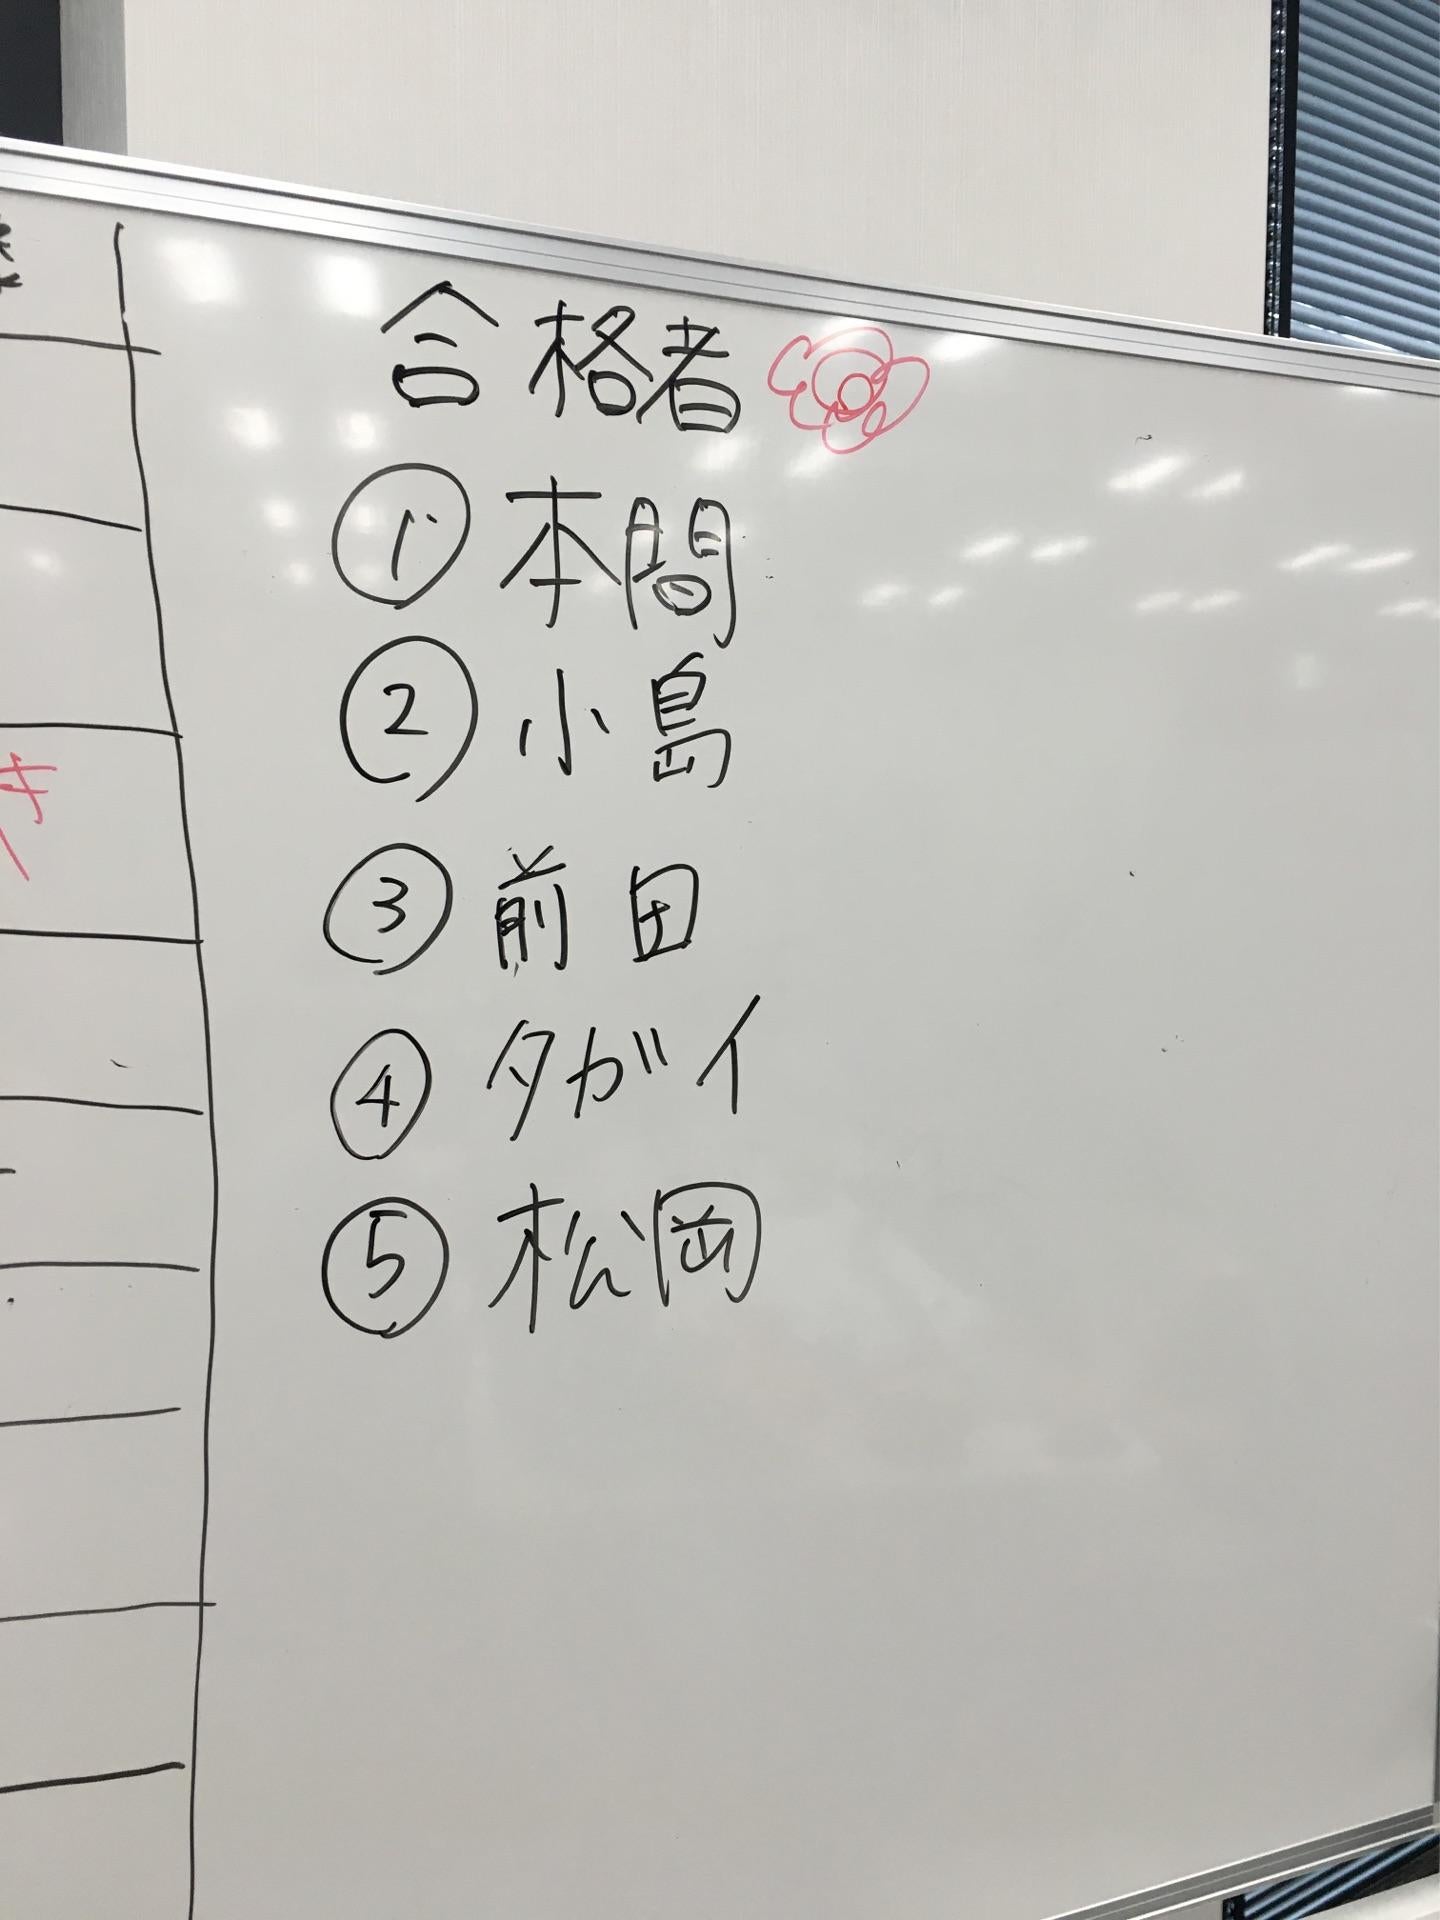 合格者
① 本間
② 小島
③ 前田
④ タガイ
⑤ 松岡
き